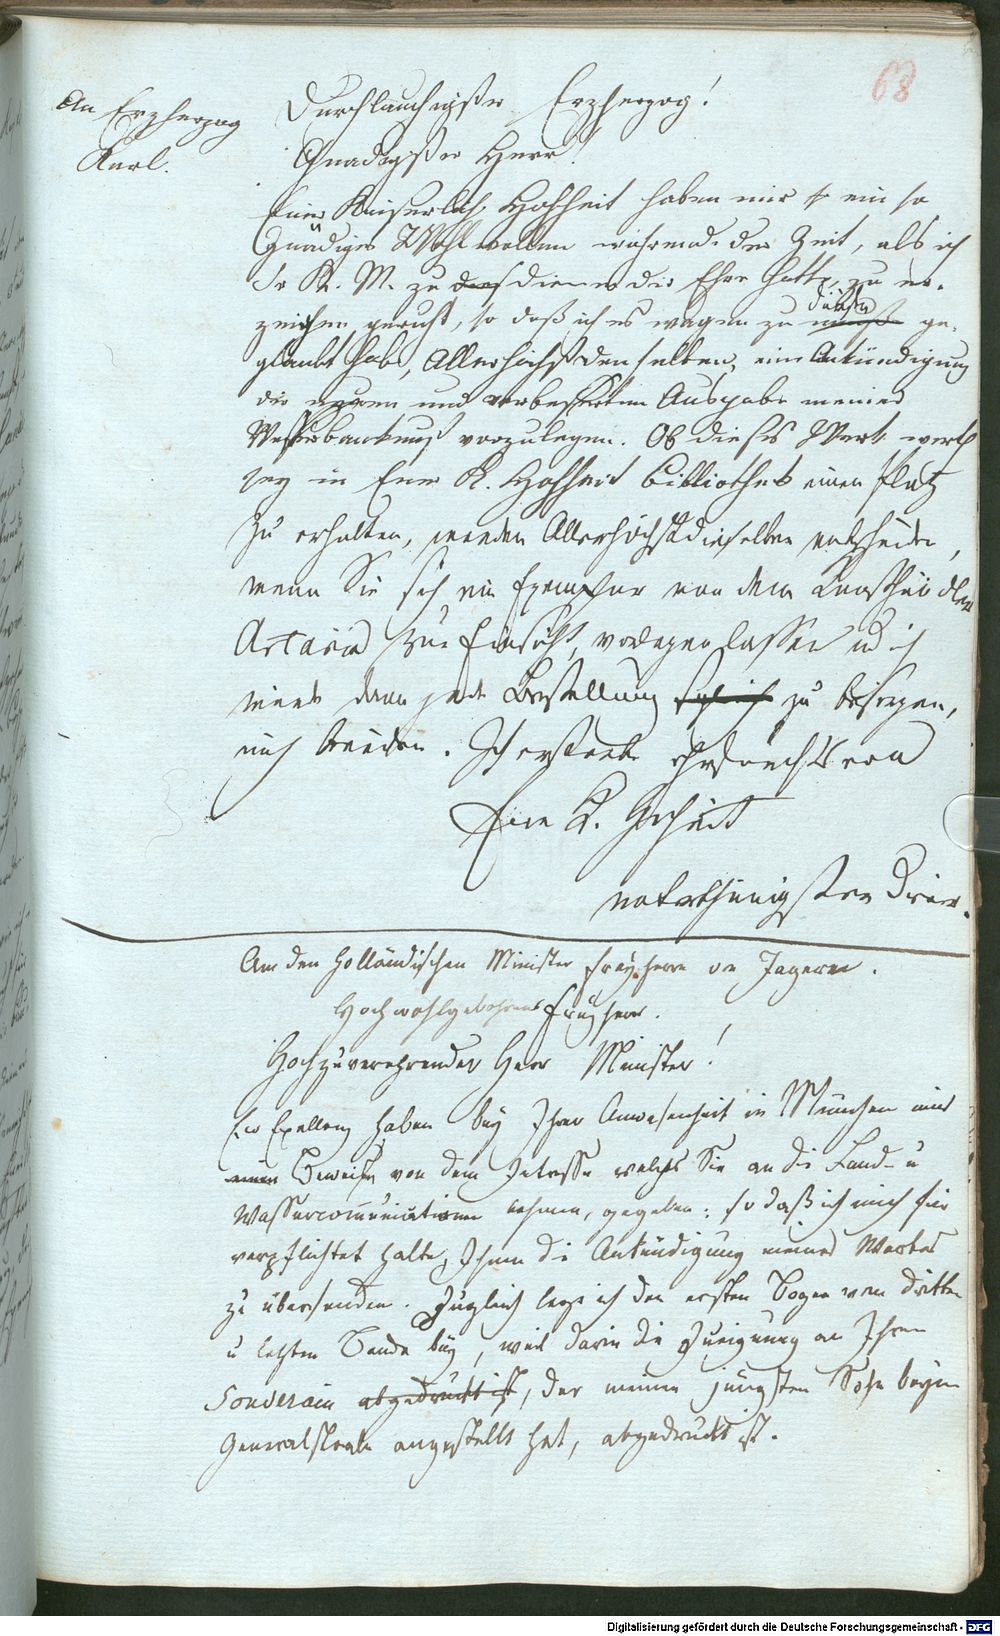 68
An Erzherzog
Karl.
Durchlauchigster Erzherzog!
Gnädigster Herr!
Euer Kaiserlich. Hohheit haben mir ein so
gnädiges Wohlwollen während der Zeit, als ich
Sr K. M. zu dienen die Ehre hatte, zu er-
zeichen geruht, so daß ich es wagen zu dürfen ge-
glaubt habe, Allerhöchst denselben, eine Ankündigung
der neuen und verbesserten Ausgabe meines
Wasserbaukunst vorzulegen. Ob dieses Werk werth
sey in Euer K. Hohheit Bibliothek einen Platz
zu erhalten, werden Allerhöchstdieselben entscheiden,
wenn Sie sich ein Exemplar von dem Kunsthändler
Artaria zur Einsicht vorlegen lassen u ich
werde dann jede Bestellung zu besorgen,
mich beeiden. Ich ersterbe ehrfurchtsvoll
Eurer K. Hoheit
unterthänigster Diener.
An den Holländischen Minister Freyherrn von Gagern.
Hochwohlgebohrner Freyherr.
Hochzuverehrender Herr Minister!
Eu Exellenz haben bey Ihrer Anwesenheit in München mir
einen Beweise von dem Interesse welches Sie an die Land- u
Wassercommunicationen nehmen, gegeben: so daß ich mich für
verpflichtet halte, Ihnen die Ankündigung meines Werkes
zu übersenden. Zugleich lege ich den ersten Bogen vom dritten
u letzten Bande bey, weil darin die Zueignung an Ihren
Souverain abgedruckt ist, der meinen jüngsten Sohn beym
Generalstaabe angestellt hat, abgedruckt ist.
Digitalisierung gefördert durch die Deutsche Forschungsgemeinschaft - DFG